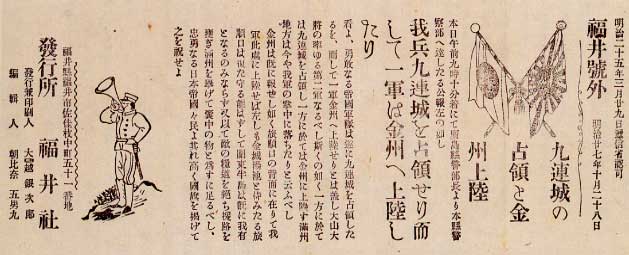 明治二十五年三月廿九日遞信省認可
福井號外
明治廿七年十月二十八日
九連城の
占領と金
州上陸
本日午前九時十分着にて廣島縣警部長より本縣警
察部へ達したる公報左の如し
我兵九連城を占領せり而
して一軍は金州へ上陸し
たり
看よ、勇敢なる帝國軍隊は遂に九連城を占領した
るを、而して一軍金州へ上陸せりとは蓋し大山大
將の率ゆる第二軍なるべし斯くの如く一方に於て
は九連城を占領し一方に於ては金州に上陸す滿州
地方は今や我軍の掌中に落ちたりと云ふべし
金州は既に報せし如く旅順口の背面に在りて我
軍此處に上陸せば左しも金城湯池と恃みたる旅
順口は復た守る能はずして關東半島は既に我有
となるのみならず又以て敵の糧道を絶ち援路を
壅ぎ滿州を擧げて嚢中の物と為すに足るべし、
忠勇なる日本帝國々民よ其れ高く國旗を揚げて
之を祝せよ
福井縣福井市佐佳枝中町五十一番地
發行所 福井社
發行兼印刷人 大越銀次郎
編輯人 朝比奈五男九